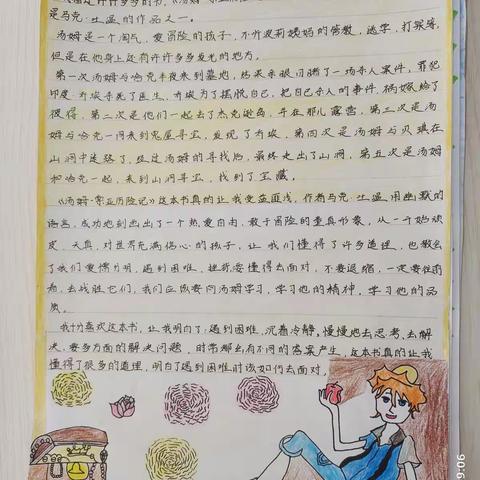 是马克·吐温的作品之一。
汤姆是一个淘气、爱冒险的孩子，不听波莉姨妈的管教，逃学，打架等，
但是在他身上还有许许多多发光的地方。
第一次汤姆与哈克半夜来到墓地，结果亲眼目睹了一场杀人案件，罪犯
印度·乔埃杀死了医生，乔埃为了摆脱自己，把自己杀人的事件祸嫁给了
彼得，第二次是他们一起去了杰克逊岛，并在那儿露营，第三次是汤
姆与哈克一同来到鬼屋寻宝，发现了乔埃，第四次是汤姆与贝琪在
山洞中迷路了，经过汤姆的寻找后，最终走出了山洞，第五次是汤姆
和哈克一起，来到山洞寻宝，找到了宝藏。
《汤姆·索亚历险记》这本书真的让我受益匪浅，作者马克·吐温用幽默的
语言，成功地刻画出了一个热爱自由、敢于冒险的童真形象，从一个顽
皮、天真，对世界充满信心的孩子，让我们懂得了许多道理，也教会
了我们爱憎分明，遇到困难、挫折要懂得去面对，不要退缩，一定要往前
看，去战胜它们，我们应该要向汤姆学习，学习他的精神，学习他的品
质。
我十分喜欢这本书，让我明白了：遇到困难，沉着冷静，慢慢地去思考、去解
决，要多方面的解决问题，时常都会有不同的答案产生，这本书真的让我
懂得了很多的道理，明白了遇到困难时该如何去面对。
9:06